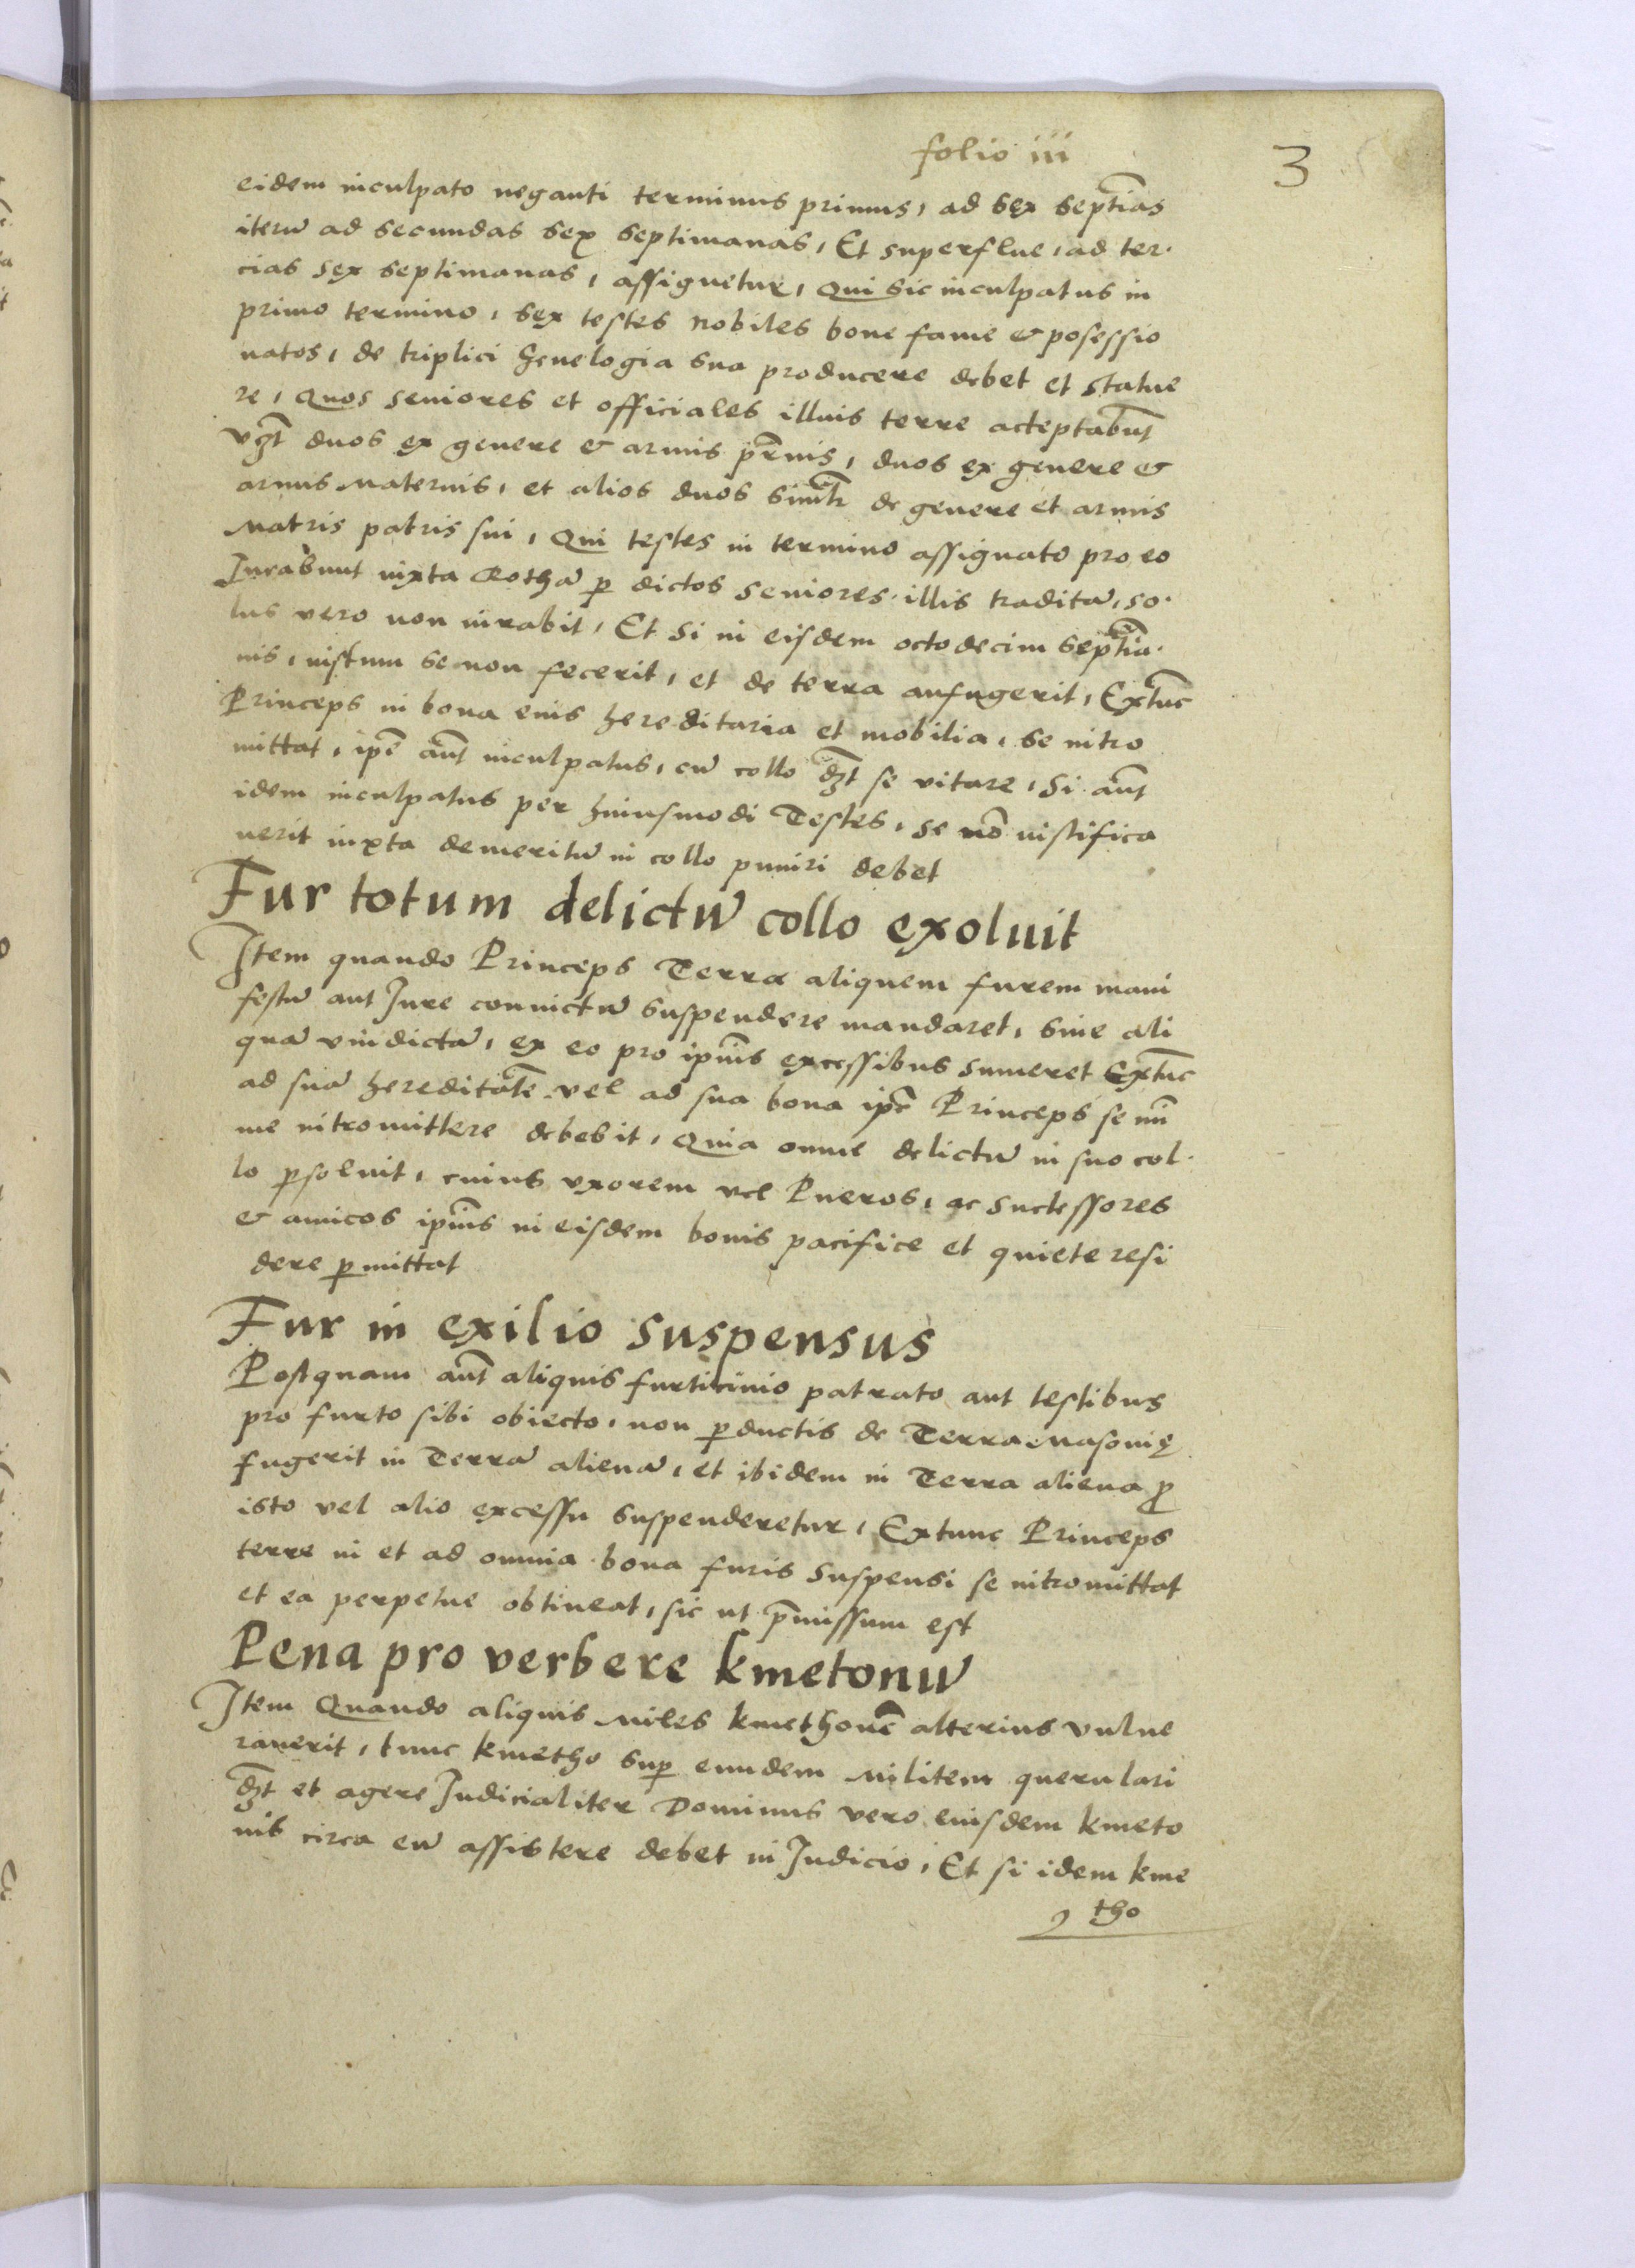 folio iii
3
eidem inculpato neganti terminus primus, ad sex septīas
iterū ad secundas sex septimanas, Et superflue, ad ter.
cias sex septimanas, assignetur, Qui sic inculpatus in
primo termino, sex testes nobiles bone fame & posessio
natos, de triplici Genelogia sua producere debet et statue
re, Quos seniores et officiales illius terre acceptabūt
vȝt duos ex genere & armis pr̄nis, duos ex genere &
armis maternis, et alios duos simlr̄ de genere et armis
matris patris sui, Qui testes in termino assignato pro eo
Jurabunt iuxta Rothā ꝑ dictos seniores illis traditā, so.
lus vero non iurabit, Et si in eisdem octodecim septīa.
nis, iustum se non fecerit, et de terra aufugerit, Extūc
Princeps in bona eius hereditaria et mobilia, se intro
mittat, ipē aūt inculpatus, cū collo dȝt se vitare, Si aūt
idem inculpatus per huiusmodi Testes, se nō iustifica
uerit iuxta demeritū in collo puniri debet
Fur totum delictū collo exoluit
Item quando Princeps Terræ aliquem furem mani
festū aut Jure conuictū suspendere mandaret, sine ali
qua vindicta, ex eo pro ipīus excessibus sumeret Extūc
ad suā hereditātē vel ad sua bona ipē Princeps se mī
me intromittere debebit, Quia omne delictū in suo col.
lo ꝑsoluit, cuius vxorem vel Pueros, ac successores
& amicos ipīus in eisdem bonis pacifice et quiete resi
dere ꝑmittat
Fur in exilio suspensus
Postquam aūt aliquis furticinio patrato aut testibus
pro furto sibi obiecto, non ꝓductis de Terra Masouię
fugerit in Terrā alienā, et ibidem in Terra aliena ꝓ
isto vel alio excessu suspenderetur, Extunc Princeps
terre in et ad omnia bona furis suspensi se intromittat
et ea perpetue obtineat, sic ut p̄missum est
Pena pro verbere kmetonū
Item Quando aliquis Miles kmethonē alterius vulne
rauerit, tunc kmetho suꝑ eundem Militem querulari
dȝt et agere Judicialiter Dominus vero eiusdem kmeto
nis circa eū assistere debet in Judicio, Et si idem kme
tho